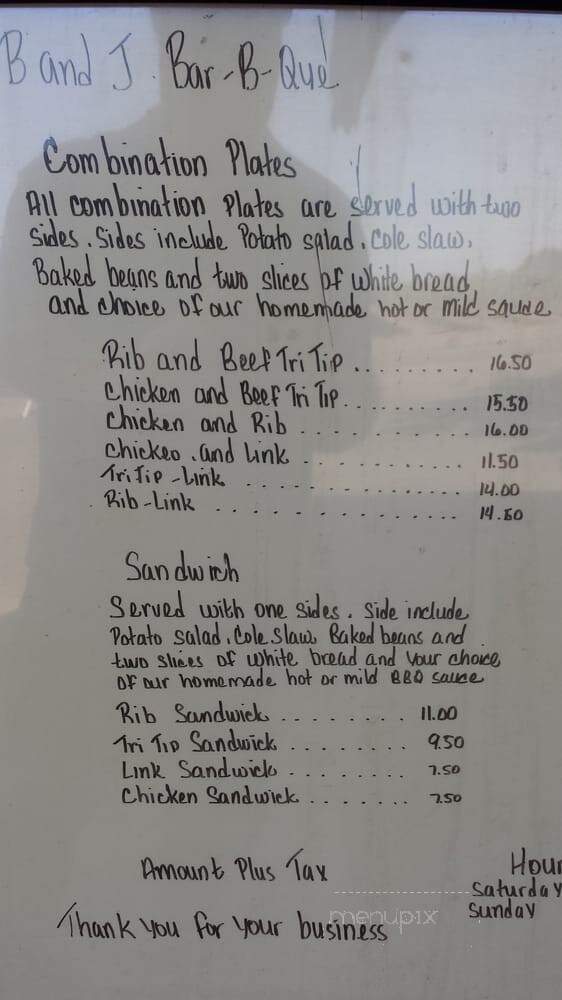 B and J. Bar-B-Que
Combination Plates
All combination Plates are served with two
sides. Sides include Potato salad. Cole slaw.
Baked beans and two slices of white bread
and choice of our homemade hot or mild sauce
Rib and Beef Tri Tip ......... 16.50
Chicken and Beef Tri Tip.......... 15.50
Chicken and Rib .......... 16.00
Chicken .and Link .......... 11.50
Tri Tip -Link ............... 14.00
Rib-Link ............... 14.50
Sandwich
Served with one sides. Side include
Potato salad. Cole Slaw, Baked beans and
two slices of white bread and your choice
of our homemade hot or mild BBQ sauce
Rib Sandwick ........ 11.00
Tri Tip Sandwick ........ 9.50
Link Sandwick ........ 7.50
Chicken Sandwick ....... 7.50
Amount Plus Tax
Hour
Saturday
Sunday
menupix
Thank you for your business